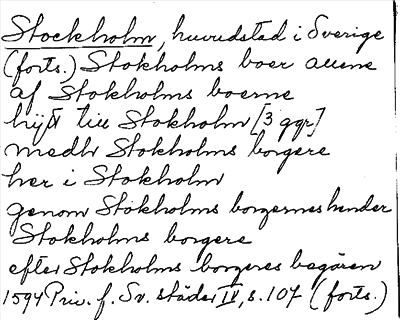 Stockholm, huvudstad i Sverige
(forts.) Stokholms boer allene
af Stokholms boerne
hijt till Stokholm [3 ggr]
medh Stokholms borgere
her i Stokholm
genom Stokholms borgernes hender
Stokholms borgere
efter Stokholms borgeres begären
1594 Priv. f. Sv. städer IV, s. 107 (forts.)